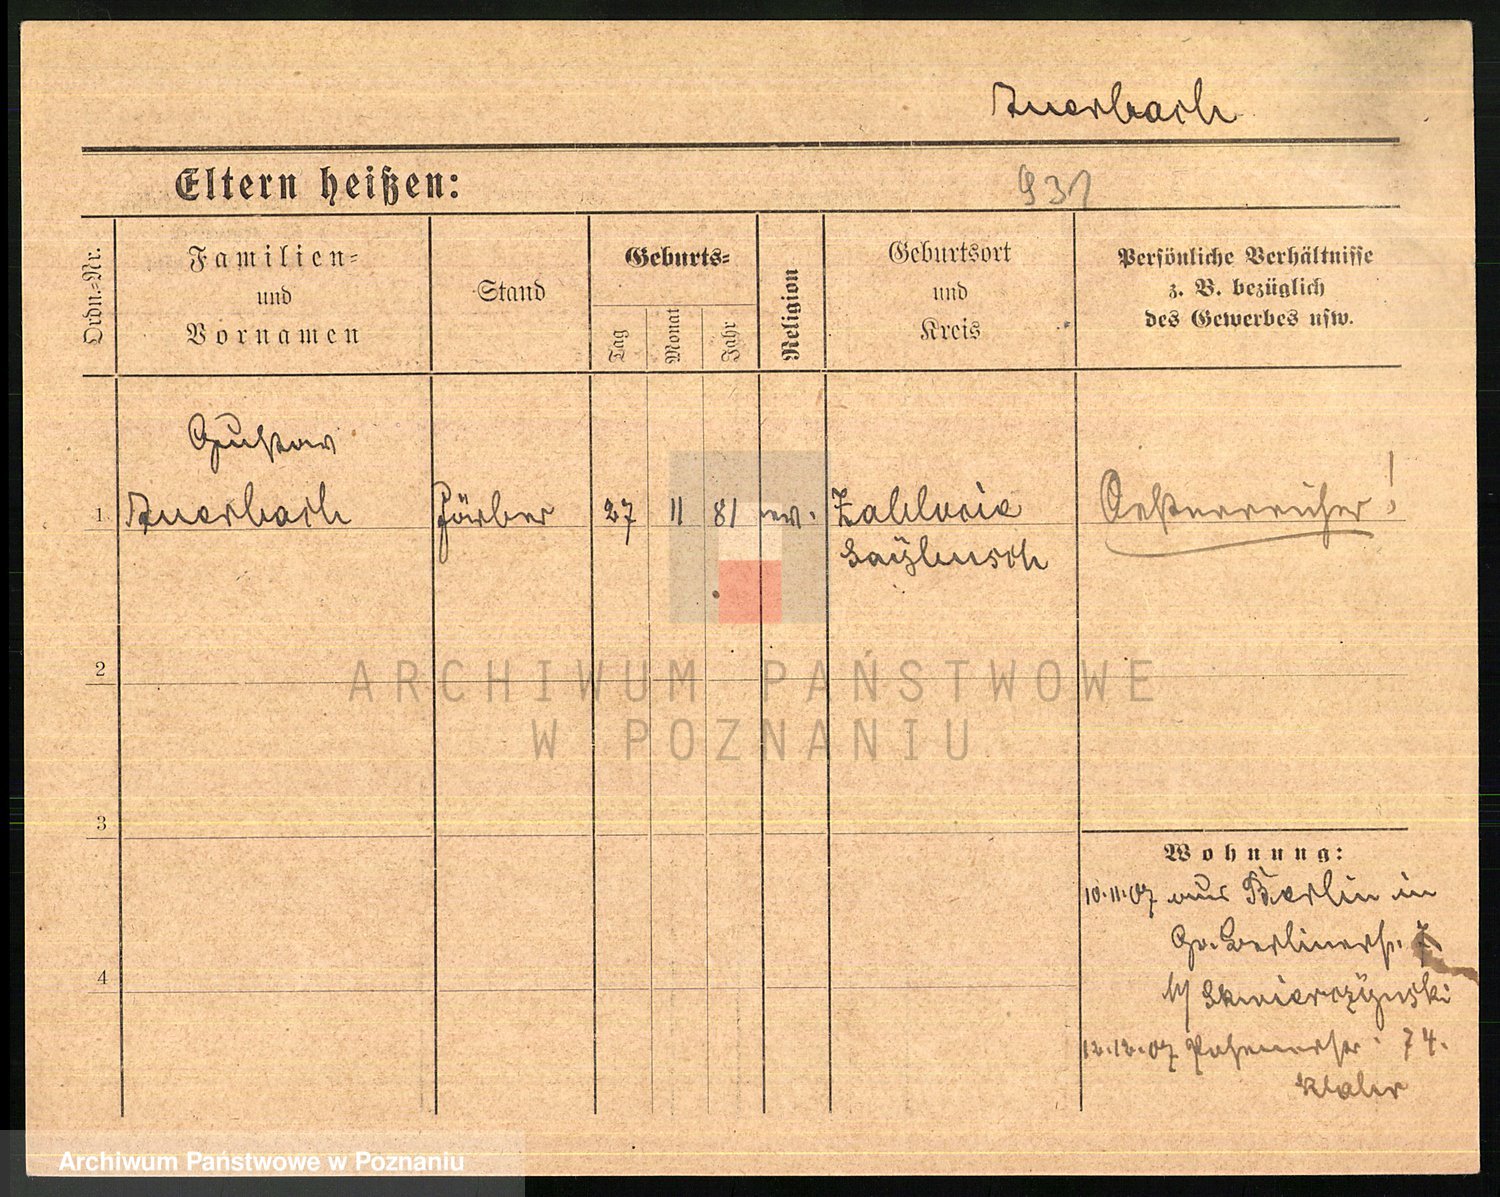 Auerbach
Eltern heißen:
931
Ordn.-Nr.
Familien-
und
Vornamen
Stand
Geburts-
Tag
Monat
Jahr
Religion
Geburtsort
und
Kreis
Persönliche Verhältnisse
z. B. bezüglich
des Gewerbes usw.
Gustav
1 Auerbach Färber 27 11 81 ev. Zablocie Oesterreicher!
Saybusch
2
ARCHIWUM PAŃSTWOWE
W POZNANIU
3
Wohnung:
10.11.07 aus Berlin in
Gr. Berlinerstr. 7
b/ Skwierczynski
4
12.12.07 Posenerstr. 74.
Archiwum Państwowe w Poznaniu